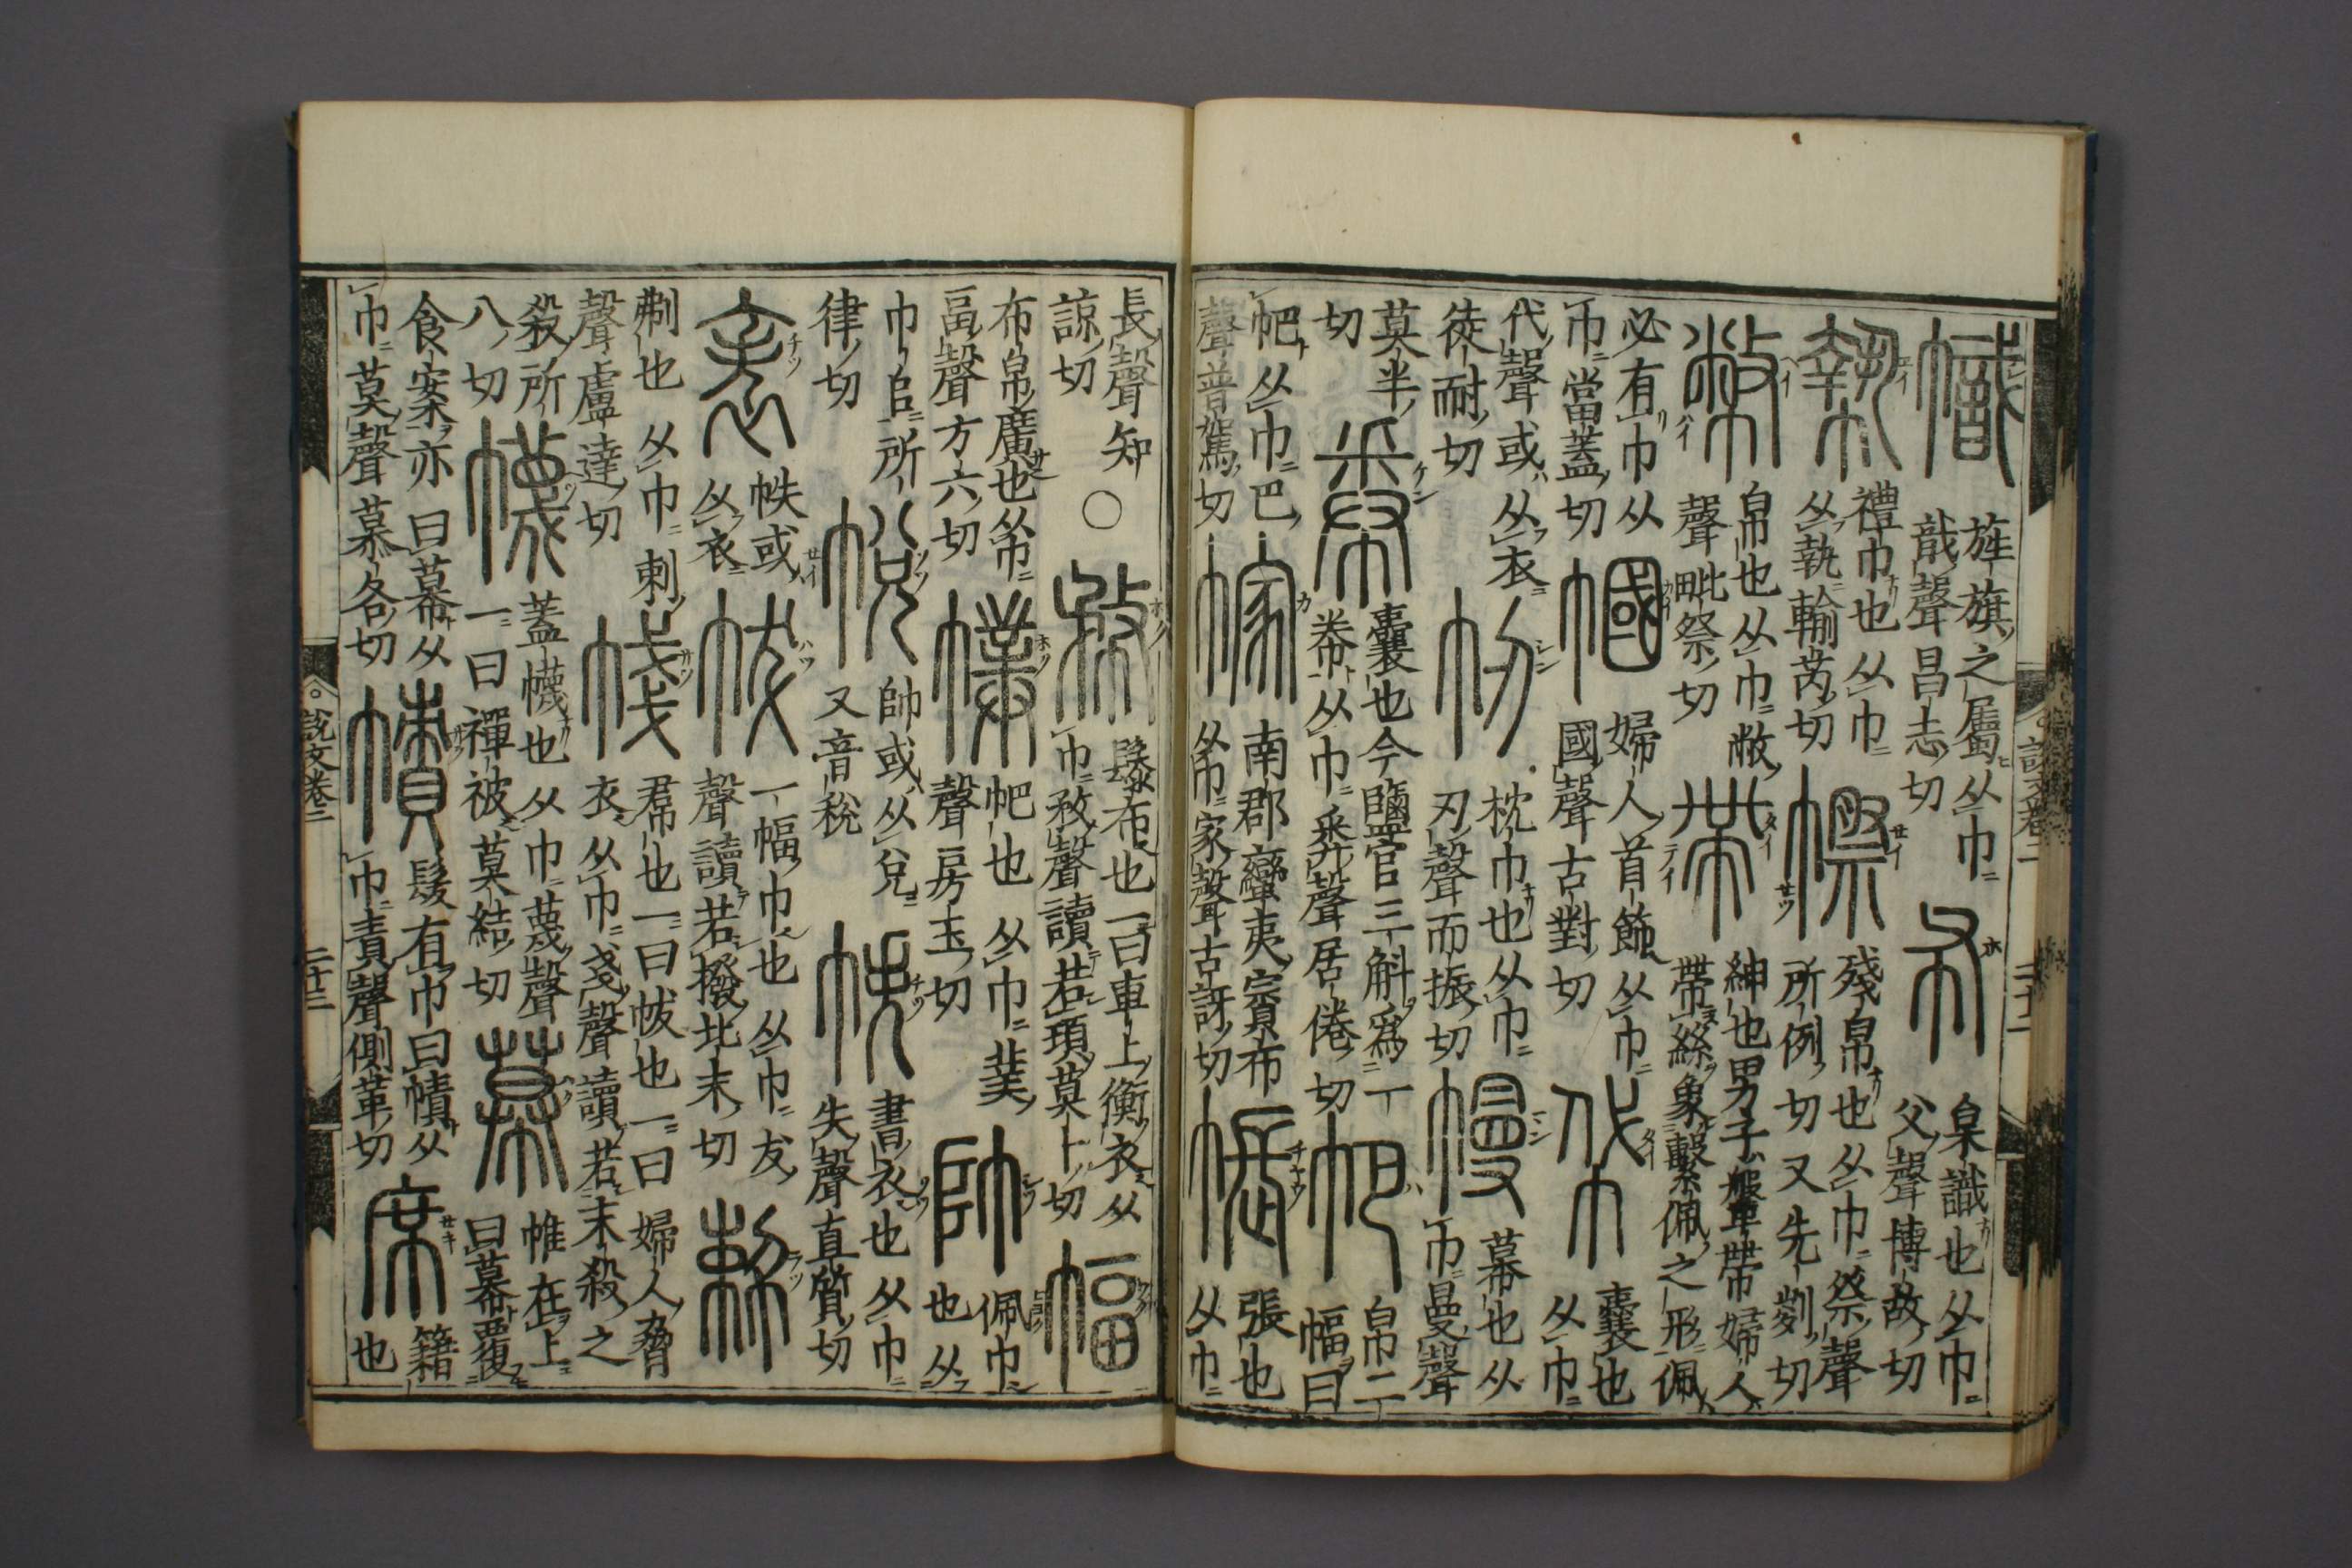 幟
旌旗之屬从巾
戠聲昌志切
布
枲識也从巾
父聲博故切
禮巾也从巾
从執輸芮切
㡜
殘帛也从巾祭聲
所例切又先切
幣
帛也从巾敝
聲毗祭切
帶
紳也男子鞶帶婦人
帶絲象繫佩之形佩
必有巾从
巾當蓋切
幗
婦人首飾从巾
國聲古對切
帒
囊也
从巾
代聲或从衣
徒耐切
㠴
枕巾也从巾
刃聲而振切
幔
幕也从
巾曼聲
莫半
切
帣
囊也今鹽官三斛爲一
帣从巾𢍏聲居倦切
帊
帛二
幅曰
帊从巾巴
聲普駕切
幏
南郡蠻夷賨布
从巾家聲古訝切
帳
張也
从巾
說文卷二
二十二
長聲知
諒切
○
㡔
髼布也一曰車上衡衣从
巾敄聲讀若頊莫卜切
幅
布帛廣也从巾
畐聲方六切
幞
帊也从巾菐
聲房玉切
帥
佩巾
也从
巾𠂤所
律切
帨
帥或从兌
又音稅
帙
書衣也从巾
失聲直質切
袠
帙或
从衣
帗
一幅巾也从巾犮
聲讀若撥北末切
刜也从巾剌
聲盧達切
帴
帬也一曰帗也一曰婦人脅
衣从巾戔聲讀若末殺之
殺所
八切
幭
蓋幭也从巾蔑聲
一曰襌被莫結切
幕
帷在上
曰幕覆
食案亦曰幕从
巾莫聲慕各切
幘
髮有巾曰幘从
巾責聲側革切
席
籍
也
說文卷二
二十二